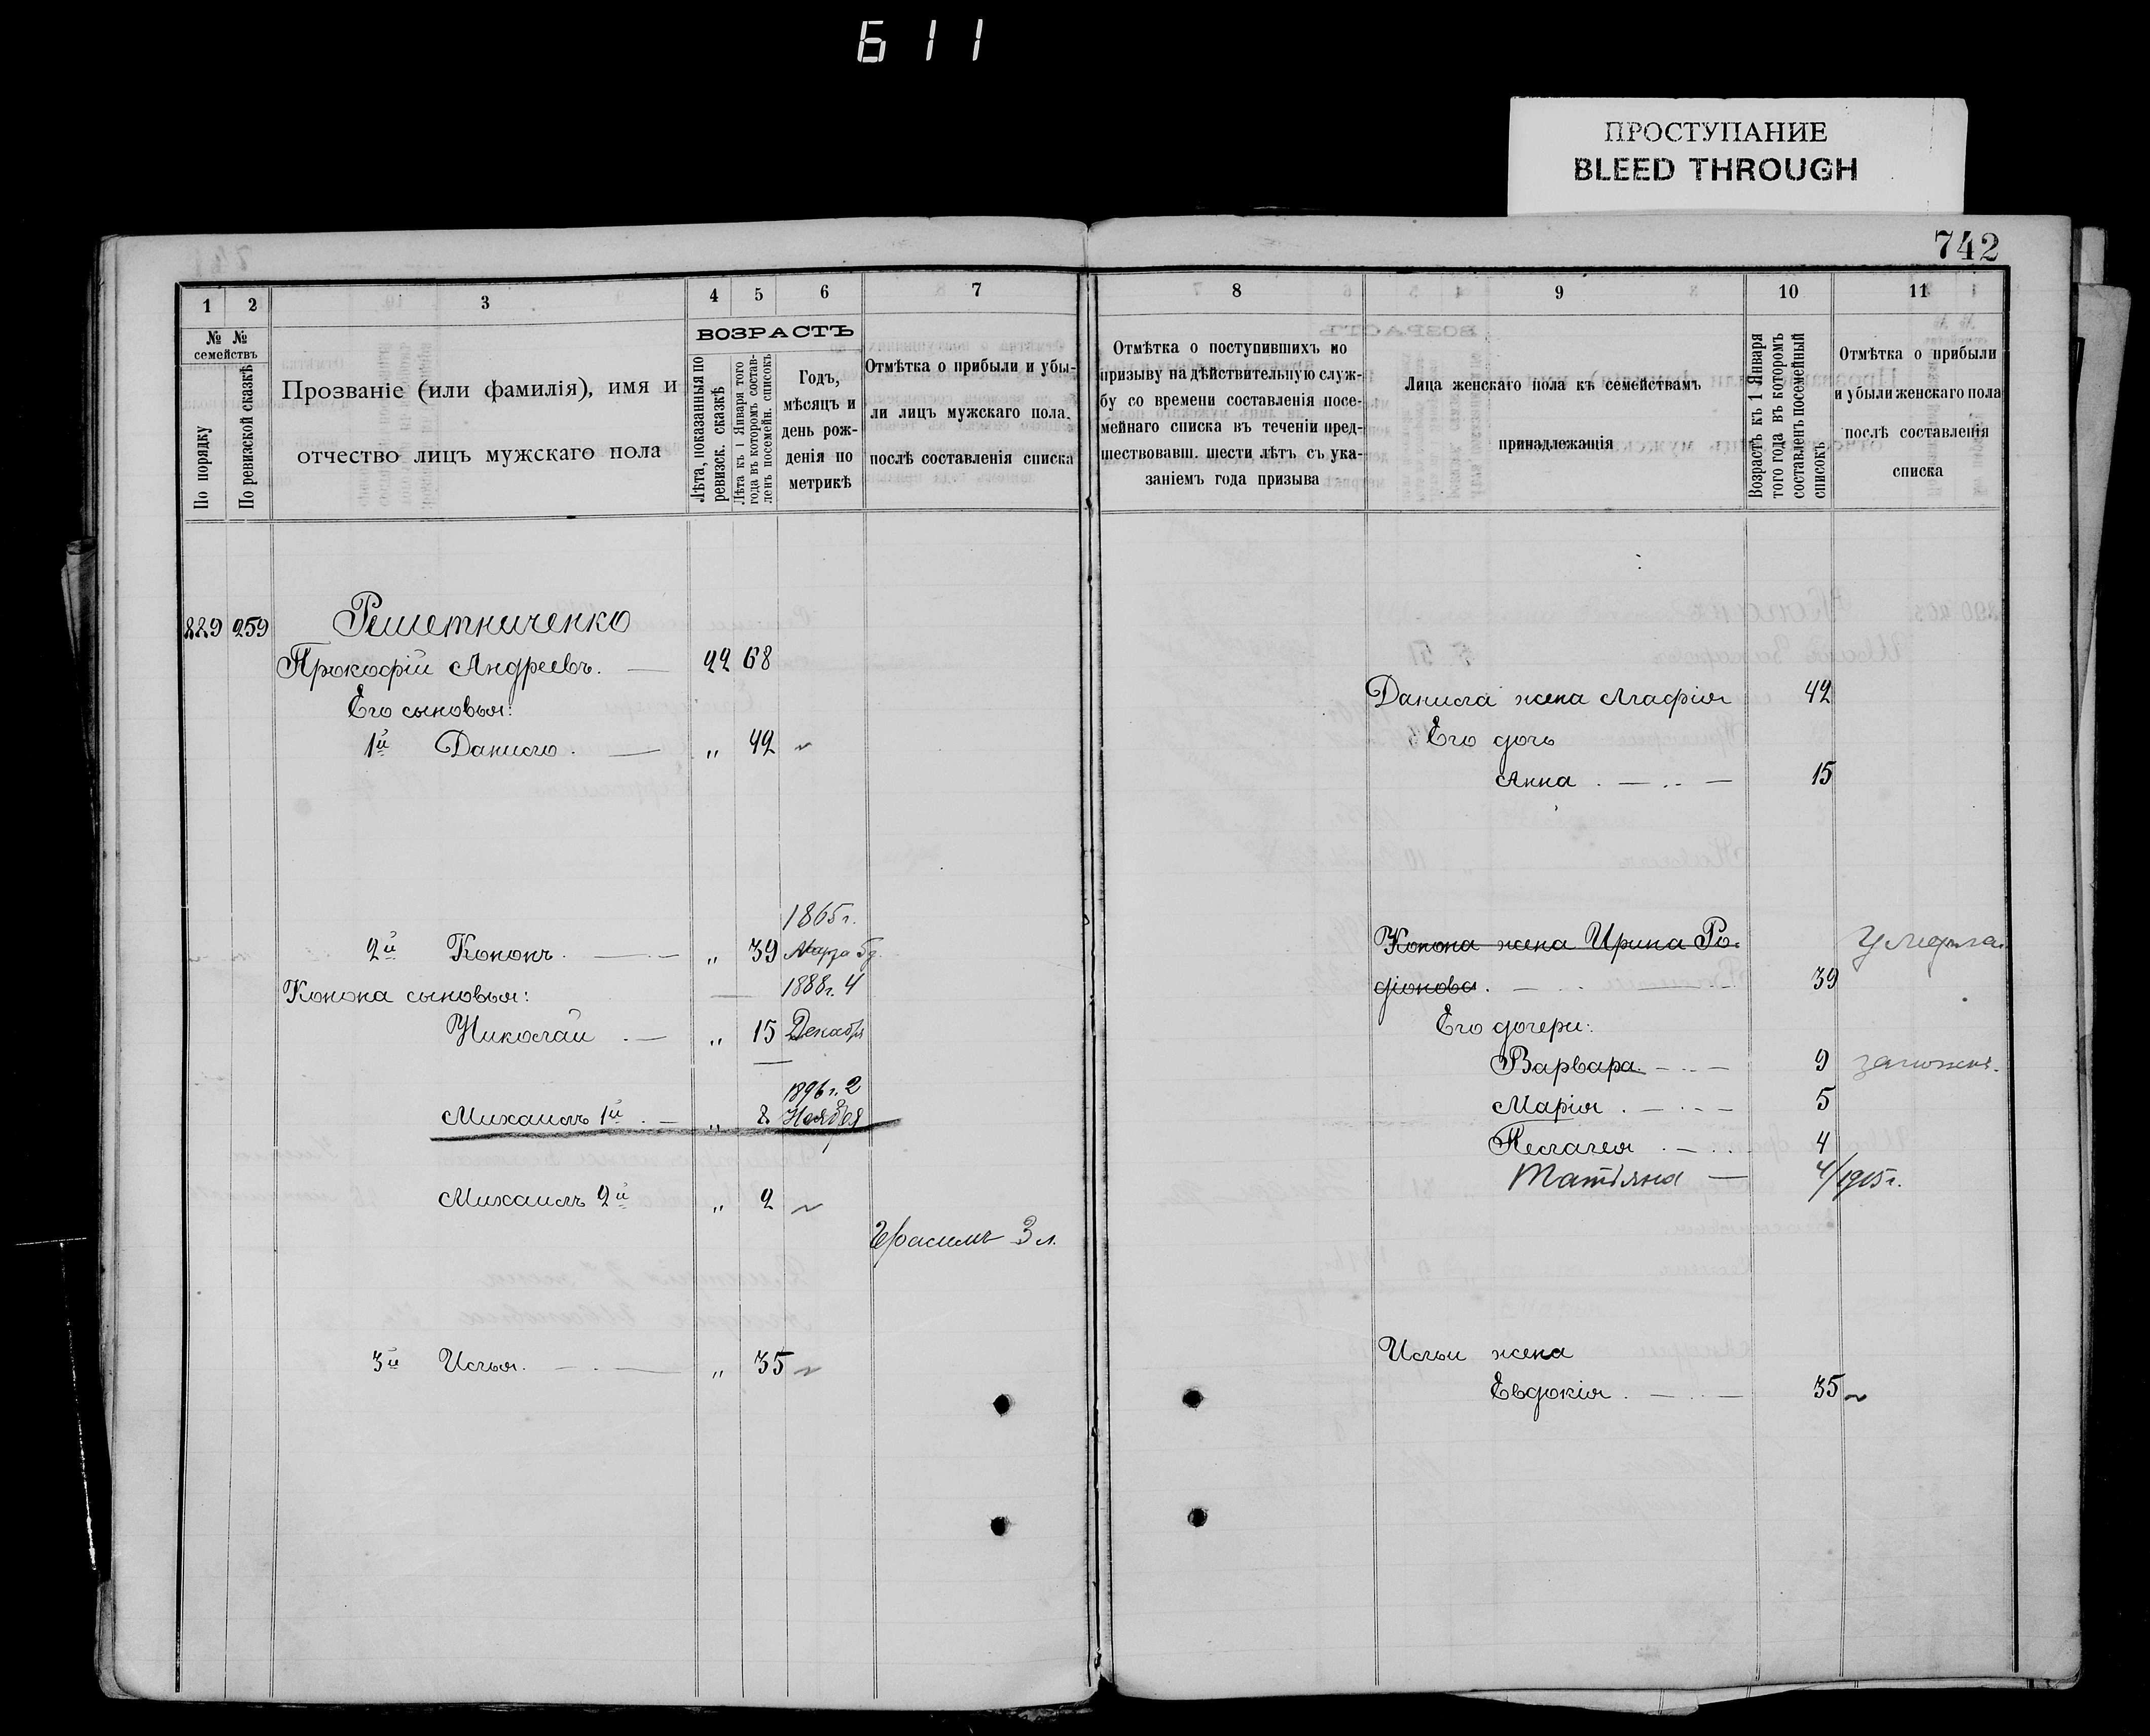 611
ПРОСТУПАНИЕ
BLEED THROUGH
742
1 2 3 4 5 6 7
№ № семействъ
По порядку
По ревизской сказкѣ
Прозваніе (или фамилія), имя и
отчество лицъ мужскаго пола
ВОЗРАСТЪ
Лѣта, показанныя по
ревизск. сказкѣ
Лѣта къ 1 Января того
года въ которомъ состав-
ленъ посемейн. списокъ
Годъ,
мѣсяцъ и
день рож-
денія по
метрикѣ
Отмѣтка о прибыли и убы-
ли лицъ мужскаго пола
послѣ составленія списка
8 9 10 11
Отмѣтка о поступившихъ по
призыву на дѣйствительную служ-
бу со времени составленія посе-
мейнаго списка въ теченіи пред-
шествовавш. шести лѣтъ съ ука-
заніемъ года призыва
Лица женскаго пола къ семействамъ
принадлежащія
Возрастъ къ 1 Января
того года въ которомъ
составленъ посемейный
списокъ
Отмѣтка о прибыли
и убыли женскаго пола
послѣ составленія
списка
229 259 Решетниченко
Прокофій Андреевъ. — 22 68
Его сыновья:
1й Данило. — „ 42
1865 г.
2й Кононъ. — „ 39 Марта 5 д.
Конона сыновья: — 1888 г. 4
Николай — „ 15 Декабря
1896 г. 2
Михаилъ 1й. — „ 8 Ноября
Михаилъ 2й „ 2
Герасимъ 3 л.
3й Илья. — „ 35
Данила жена Агафія 42
Его дочь
Анна. — 15
Конона жена Ирина Ро-
діонова. — 39 Умерла
Его дочери:
Варвара. — 9 замужем.
Марія. — 5
Пелагея. — 4
Татіяна — 4/1905 г.
Ильи жена
Евдокія. — 35